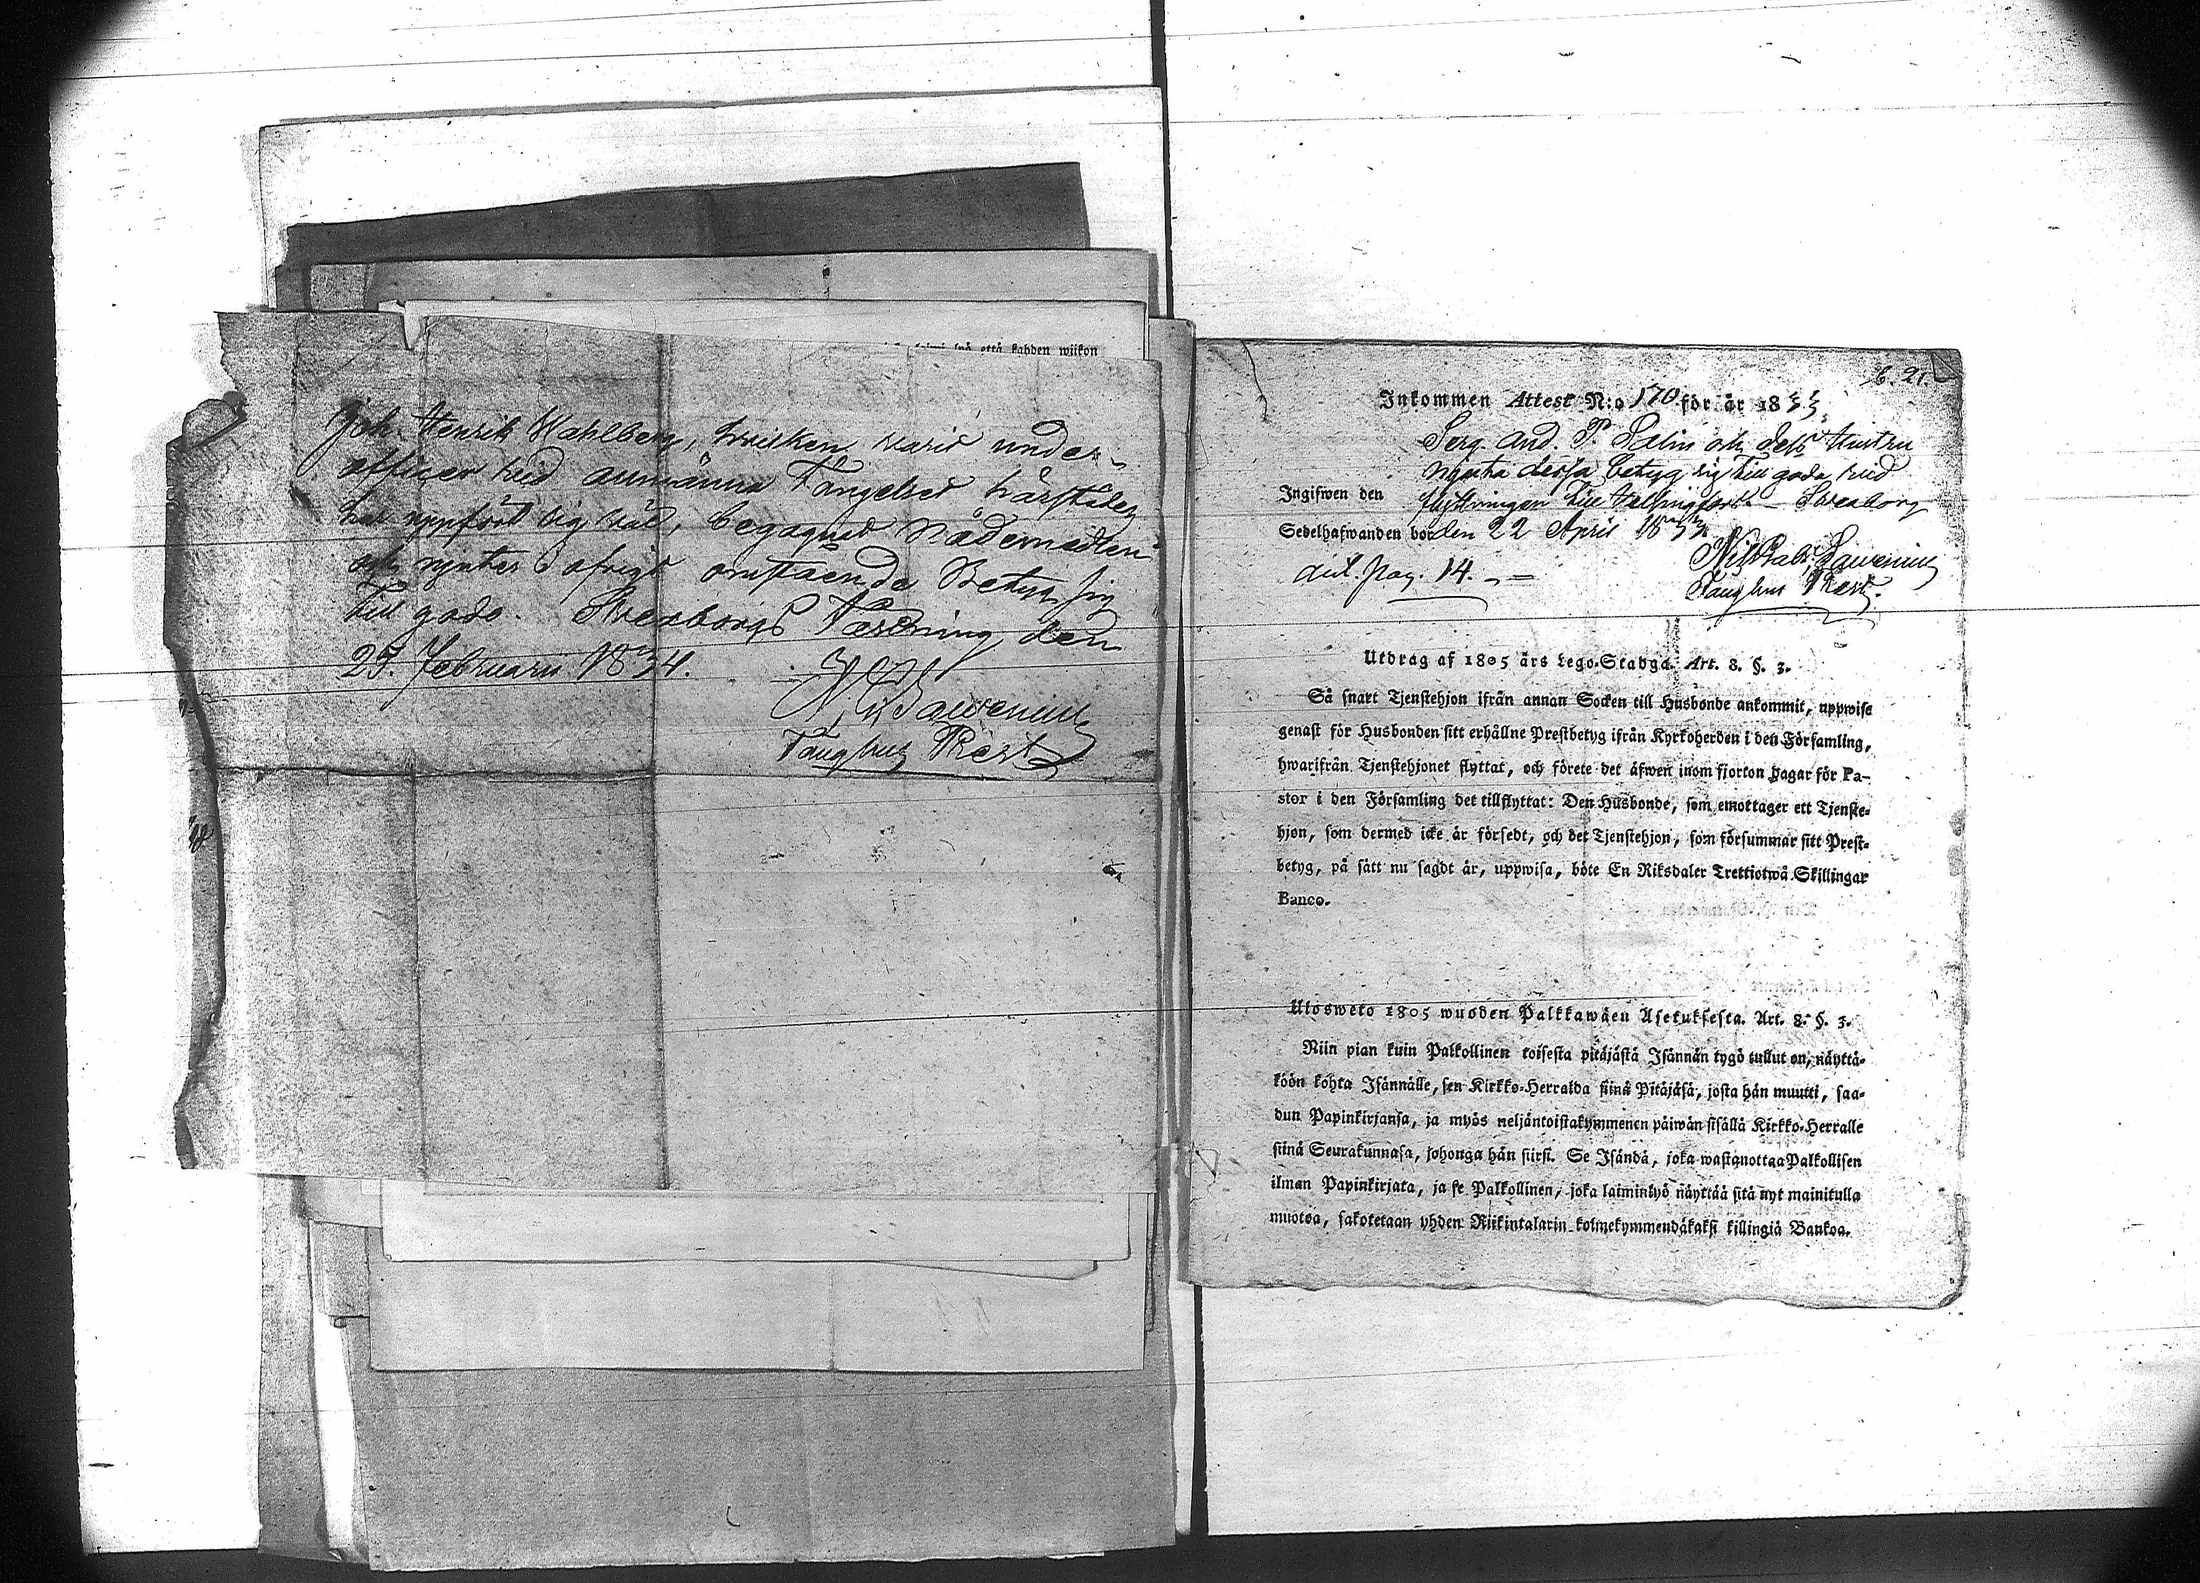 taimi sså että kahden wiikon
Joh. Henrik Wahlberg, hwilken warit under-
officer wid allmänna Fängelset härstädes
har uppfört sig wäl, begagnat Nådemedlen
och njuter i öfrigt omstående Betyg sig
till godo. Sveaborgs Fästning den
25. Februarii 1834.
Fånghus Prest
B. 21.
Inkommen Attest N:o 170 för år 1833
Serg. And. P. Salin och dess Hustru
njuta dessa betyg sig till godo wid
Ingifwen den flyttningen till Helsingfors - Sveaborg
Sedelhafwanden bor den 22 April 1833
pag. 14.
Fånghus Prest.
Utdrag af 1805 års Lego-Stadga. Art. 8. §. 3.
Så snart Tjenstehjon ifrån annan Socken till Husbonde ankommit, uppwise
genast för Husbonden sitt erhållne Prestbetyg ifrån Kyrkoherden i den Församling,
hwarifrån Tjenstehjonet flyttat, och förete det äfwen inom fjorton dagar för Pa-
stor i den Församling det tillflyttat: Den Husbonde, som emottager ett Tjenste-
hjon, som dermed icke är försedt, och det Tjenstehjon, som försummar sitt Prest-
betyg, på sätt nu sagdt är, uppwisa, böte En Riksdaler Trettiotwå Skillingar
Banco.
Ulosweto 1805 wuoden Palkkawäen Asetuksesta. Art. 8. §. 3.
Niin pian kuin Palkollinen toisesta pitäjästä Isännän tygö tullut on, näyttä-
köön kohta Isännälle, sen Kirkko-Herralda siinä Pitäjäsä, josta hän muutti, saa-
dun Papinkirjansa, ja myös neljäntoistakymmenen päiwän sisällä Kirkko-Herralle
siinä Seurakunnasa, johonga hän siirsi. Se Isändä, joka wastanottaa Palkollisen
ilman Papinkirjata, ja se Palkollinen, joka laiminlyö näyttää sitä nyt mainitulla
muotoa, sakotetaan yhden Riikintalarin kolmekymmendäkaksi killingiä Bankoa.